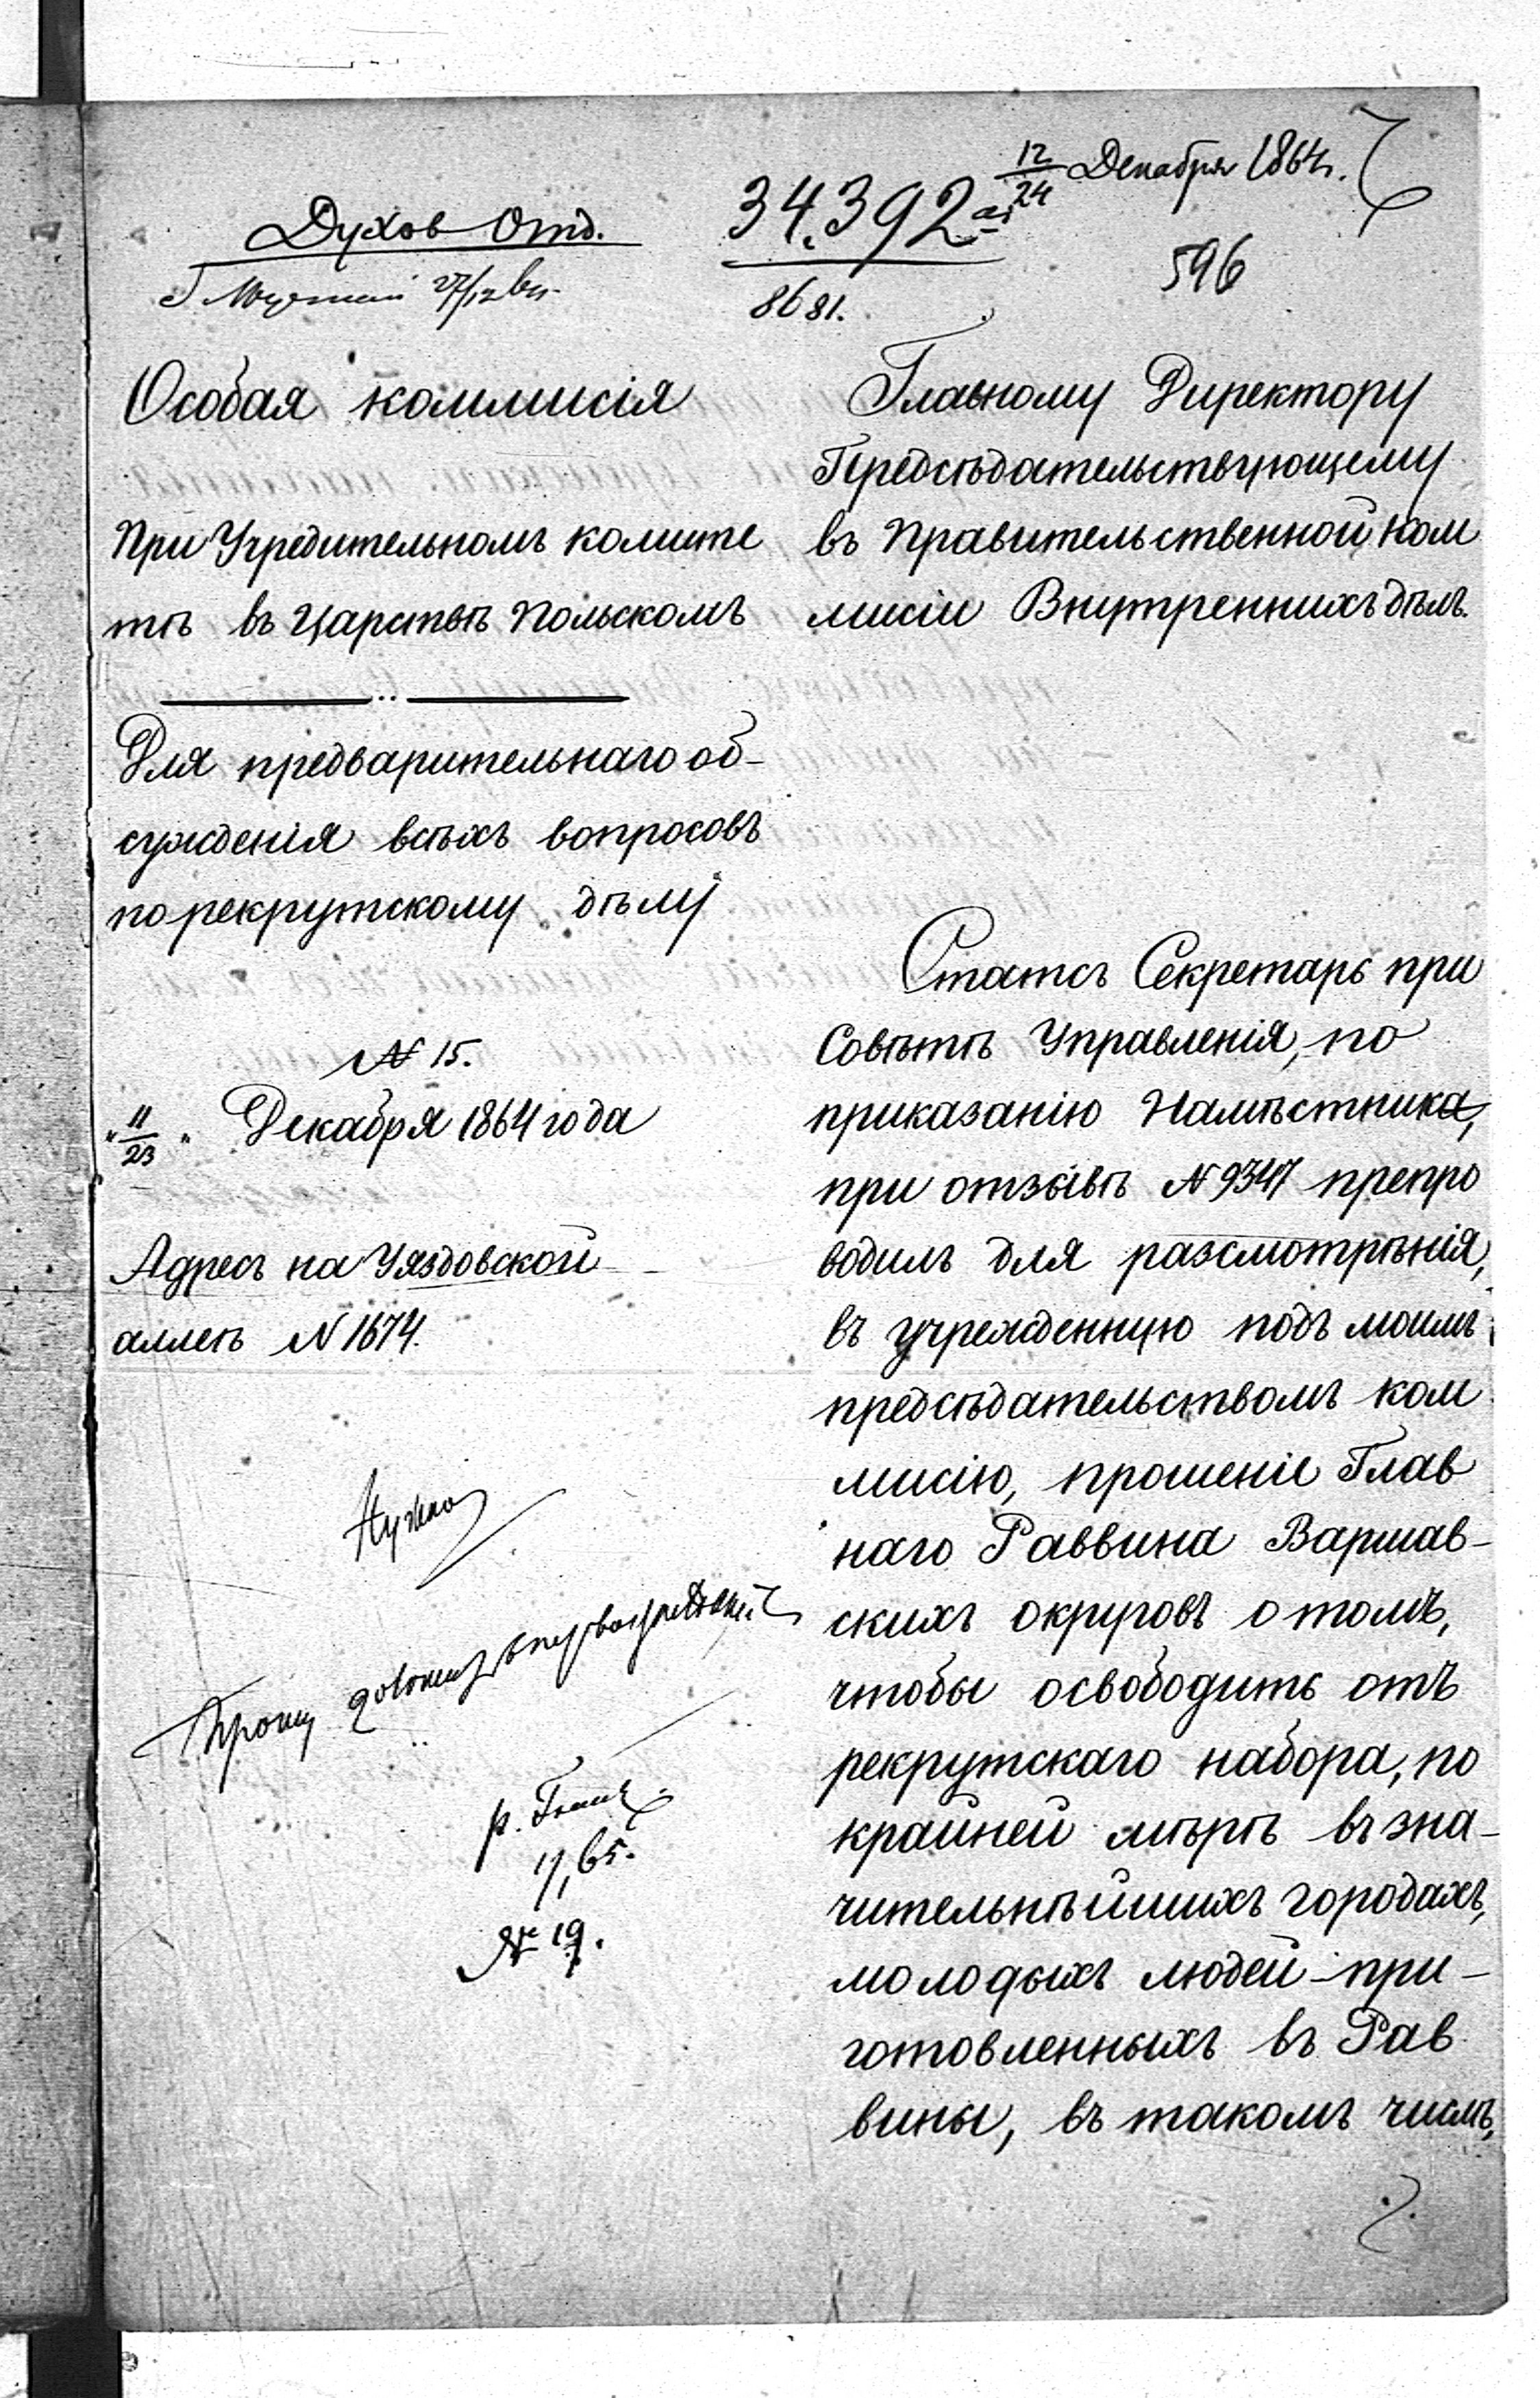 12/24 Декабря 1864 г.
Духов Отд.
34.392
27/12 64
8681.
596
Особая коммисія
При Учредительномъ комите
тѣ въ Царствѣ Польскомъ
Для предварительнаго об-
сужденія всѣхъ вопросовъ
по рекрутскому дѣлу
№ 15.
"11/23" Декабря 1864 года
Адресъ на Уяздовской
аллеѣ № 1674.
Нужно
Прошу
11/1 65.
№ 19.
Главному Директору
Предсѣдательствующему
въ Правительственной Ком
мисіи Внутреннихъ дѣлъ.
Статсъ Секретарь при
Совѣтѣ Управленія, по
приказанію Намѣстника,
при отзывѣ № 9347 препро
водилъ для разсмотрѣнія,
въ учрежденную подъ моимъ
предсѣдательствомъ ком
мисію, прошеніе Глав
наго Раввина Варшав-
скихъ округовъ о томъ,
чтобы освободить отъ
рекрутскаго набора, по
крайней мѣрѣ въ зна-
чительнѣйшихъ городахъ,
молодыхъ людей при-
готовленныхъ въ Рав
вины, въ такомъ числѣ,